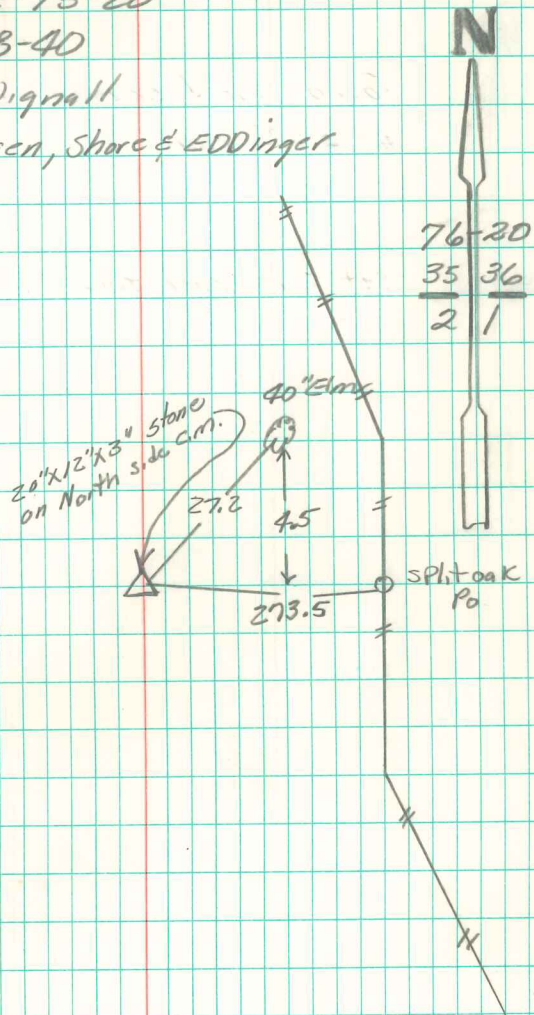 3-40
Dignall
en, Shore & EDDinger
N
76-20
35 36
2 1
40" Elm
20"X12"X3" Stone
on North side C.M.
27.2
4.5
273.5
split oak
Po